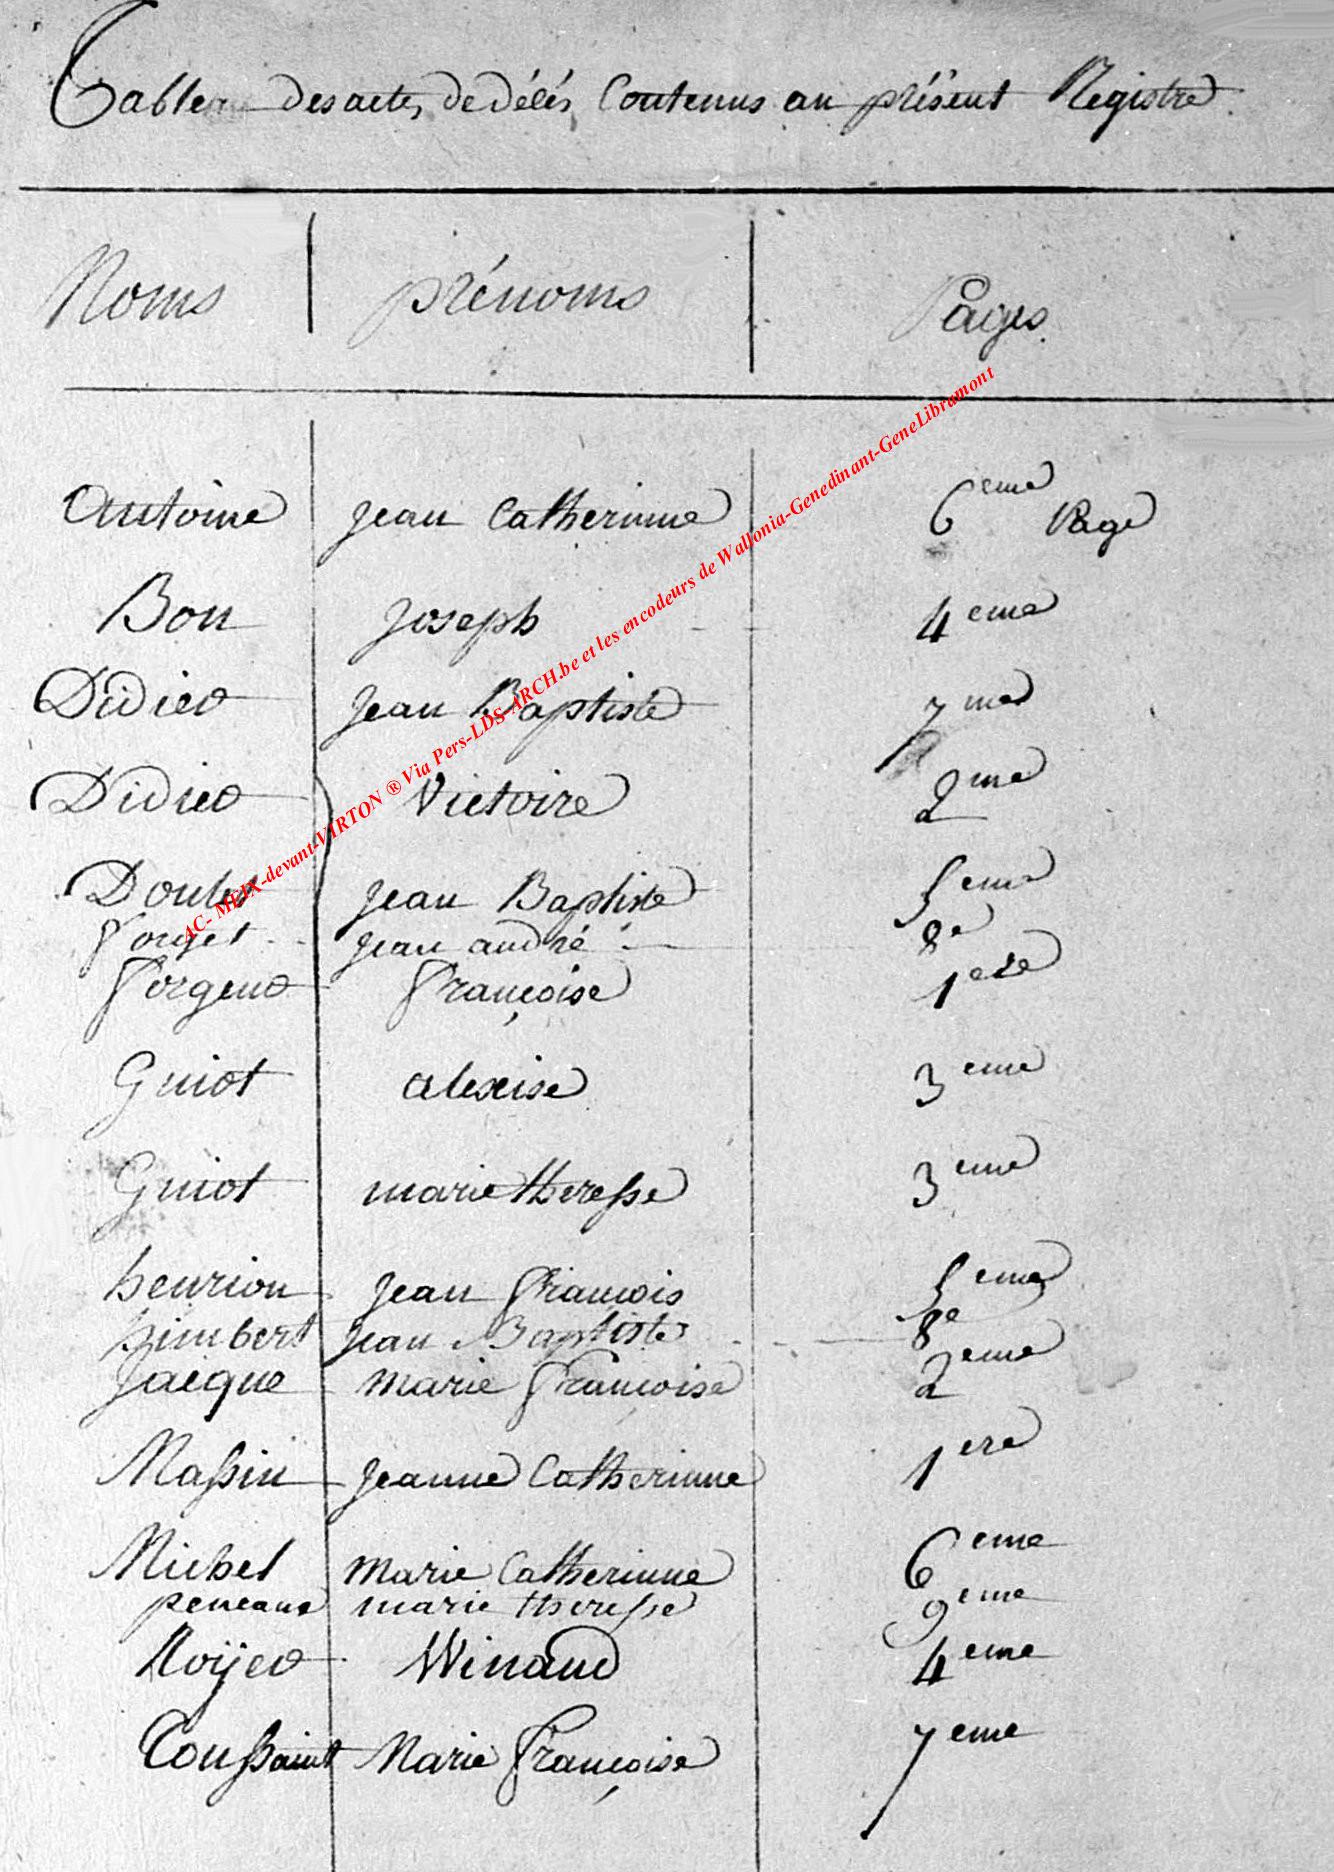 Tableau des actes de délés Contenus au présent Registre
Noms prénoms Pages
Antoine jean Catherinne 6eme Page
Bon joseph 4eme
Didier jean Baptiste 7me
Didier Victoire 2me
jean Baptiste 5eme
Forget jean andré 8e
Françoise 1ere
Guiot alexise 3eme
Guiot marie theresse 3eme
henrion jean François 5eme
himbert jean Baptiste 8e
Jacque marie Françoise 2eme
Massin jeanne Catherinne 1ere
Michel marie Catherinne 6eme
marie theresse 9eme
Roÿer Winand 4eme
Toussaint Marie Françoise 7eme
AC- MEIX-devant-VIRTON ® Via Pers-LDS-ARCH.be et les encodeurs de Wallonia-Genedinant-GeneLibramont